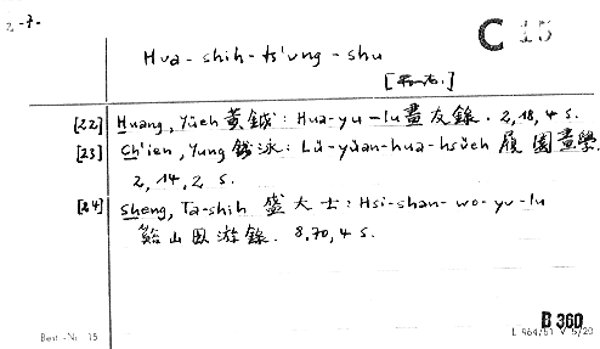 2 -7-
C 15
Hua - shih - ts'ung - shu
[22] Huang, Yüeh 黃鉞: Hua-yu-lu 畫友錄. 2,18,4 s.
[23] Ch'ien, Yung 錢泳: Lü-yüan-hua-hsüeh 履園畫學.
2,14,2 s.
[24] Sheng, Ta-shih 盛大士: Hsi-shan-wo-yu-lu
谿山臥游錄. 8,70,4 s.
B 360
Best.-Nr. 15
L 964/61 V 5/20